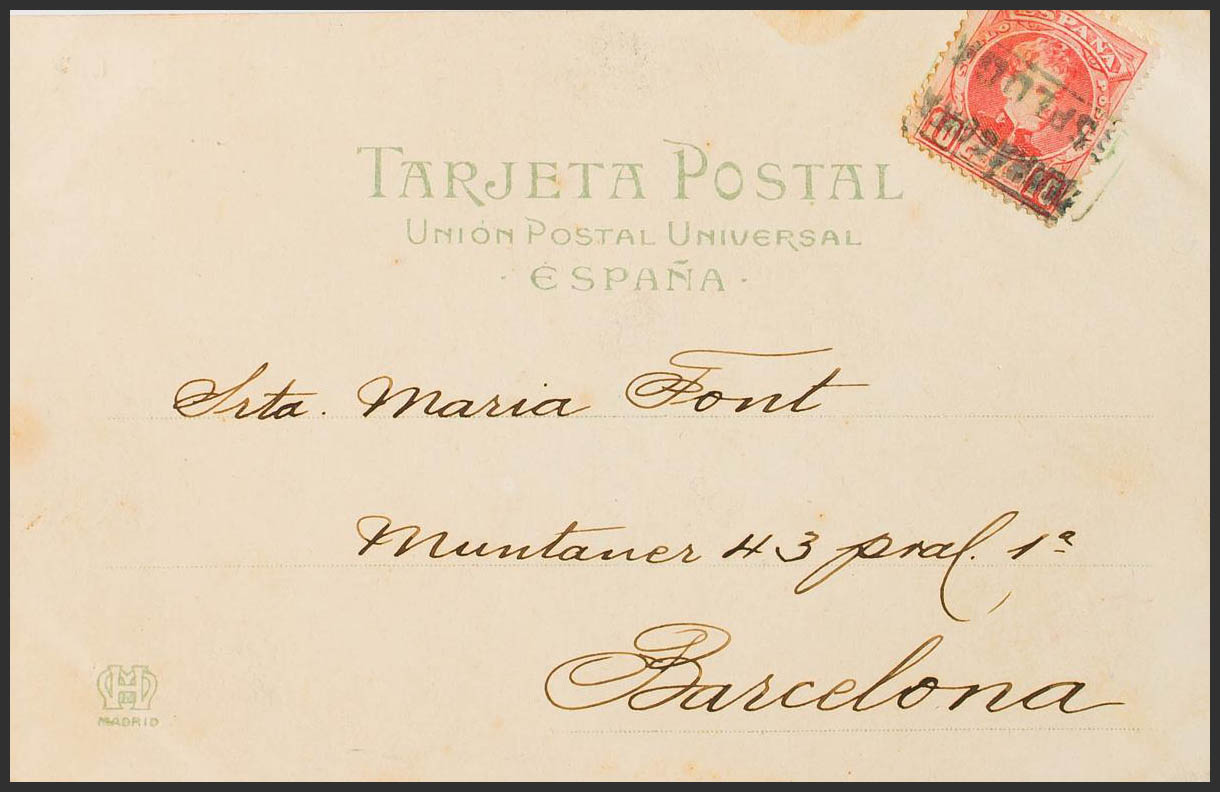 ESPAÑA
TARJETA POSTAL
UNIÓN POSTAL UNIVERSAL
· ESPAÑA ·
Srta. Maria Font
Muntaner 43 pral. 1ª
Barcelona
MADRID